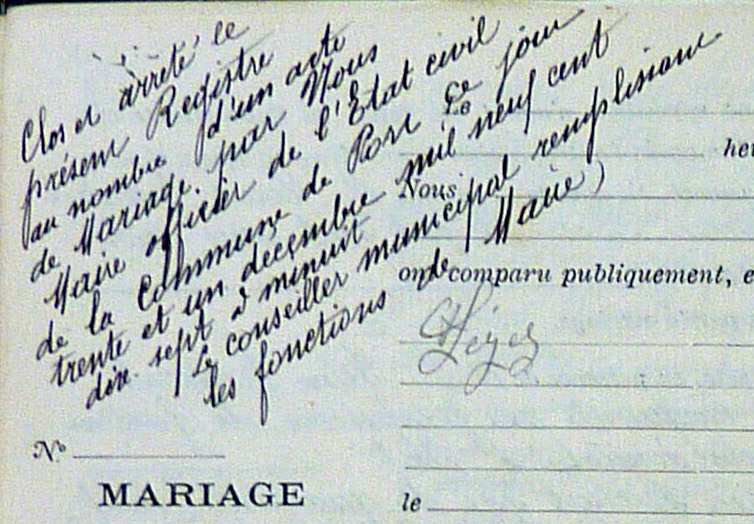 Clos et arrêté le
présent Registre
au nombre d'un acte
de Mariage par Nous
Maire officier de l'Etat civil
de la Commune de Porri Ce jour
trente et un décembre mil neuf cent
dix sept à minuit
Le conseiller municipal remplissant
les fonctions de Maire)
Le
heu
Nous
ont comparu publiquement, e
No
MARIAGE
le